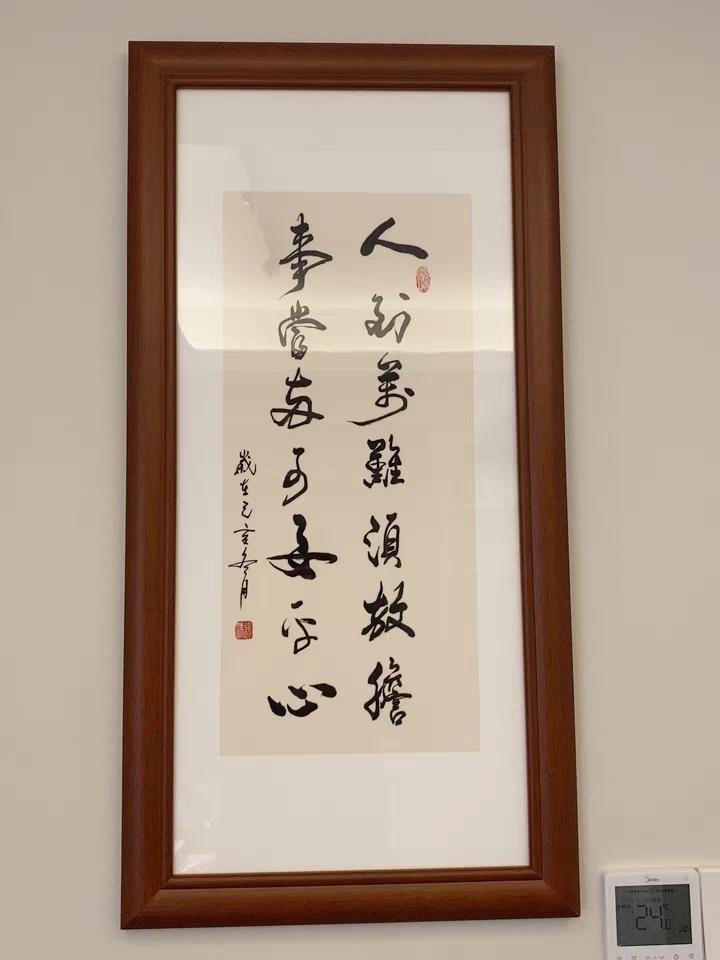 人到萬難須放膽
事當兩可要平心
歲在己亥冬月
Midea
24.0
°C